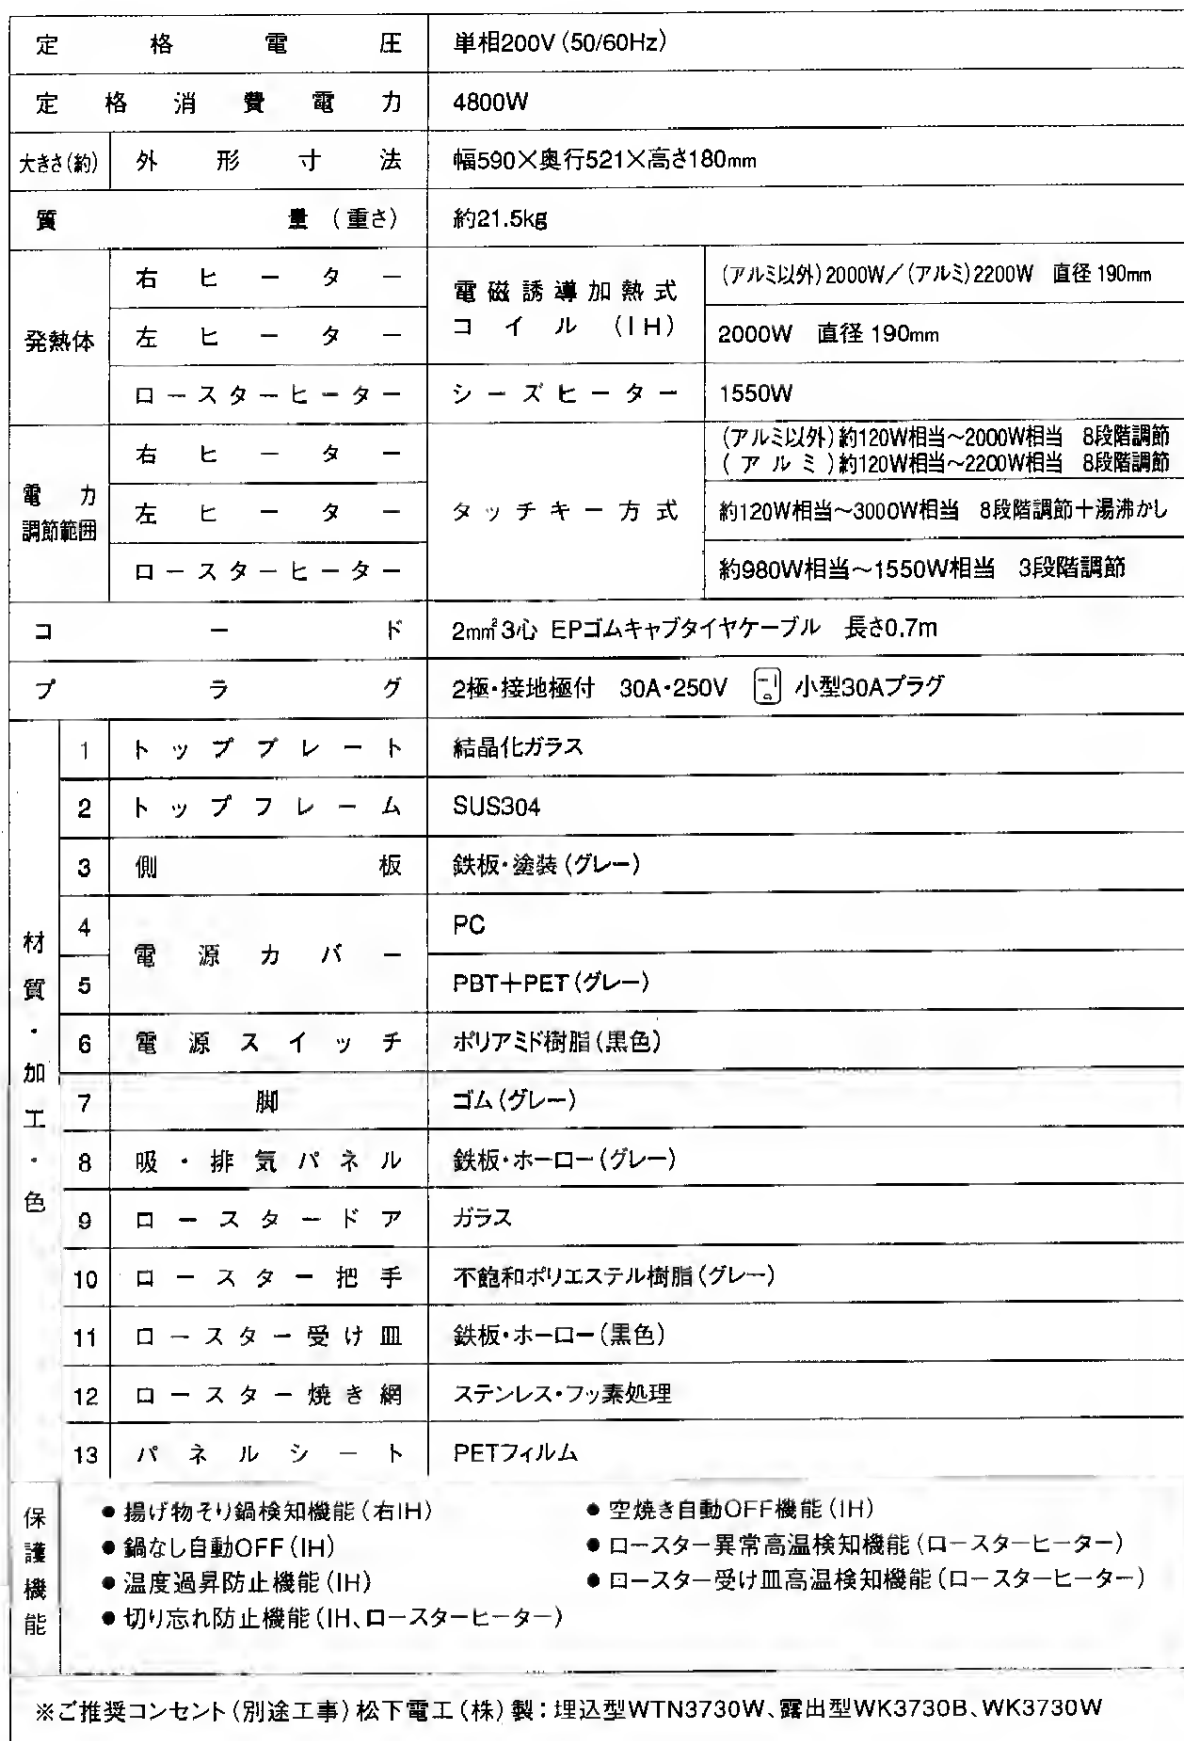 定格電圧 単相200V(50/60Hz)
定格消費電力 4800W
大きさ(約) 外形寸法 幅590×奥行521×高さ180mm
質量(重さ) 約21.5kg
発熱体 右ヒーター 電磁誘導加熱式コイル(IH) (アルミ以外)2000W/(アルミ)2200W 直径190mm
左ヒーター 2000W 直径190mm
ロースターヒーター シーズヒーター 1550W
電力調節範囲 右ヒーター タッチキー方式 (アルミ以外)約120W相当~2000W相当 8段階調節
(アルミ)約120W相当~2200W相当 8段階調節
左ヒーター 約120W相当~3000W相当 8段階調節+湯沸かし
ロースターヒーター 約980W相当~1550W相当 3段階調節
コード 2mm²3心 EPゴムキャブタイヤケーブル 長さ0.7m
プラグ 2極・接地極付 30A・250V 小型30Aプラグ
材質・加工・色
1 トッププレート 結晶化ガラス
2 トップフレーム SUS304
3 側板 鉄板・塗装(グレー)
4 電源カバー PC
5 PBT+PET(グレー)
6 電源スイッチ ポリアミド樹脂(黒色)
7 脚 ゴム(グレー)
8 吸・排気パネル 鉄板・ホーロー(グレー)
9 ロースタードア ガラス
10 ロースター把手 不飽和ポリエステル樹脂(グレー)
11 ロースター受け皿 鉄板・ホーロー(黒色)
12 ロースター焼き網 ステンレス・フッ素処理
13 パネルシート PETフィルム
保護機能
●揚げ物そり鍋検知機能(右IH)
●鍋なし自動OFF(IH)
●温度過昇防止機能(IH)
●切り忘れ防止機能(IH、ロースターヒーター)
●空焼き自動OFF機能(IH)
●ロースター異常高温検知機能(ロースターヒーター)
●ロースター受け皿高温検知機能(ロースターヒーター)
※ご推奨コンセント(別途工事)松下電工(株)製:埋込型WTN3730W、露出型WK3730B、WK3730W